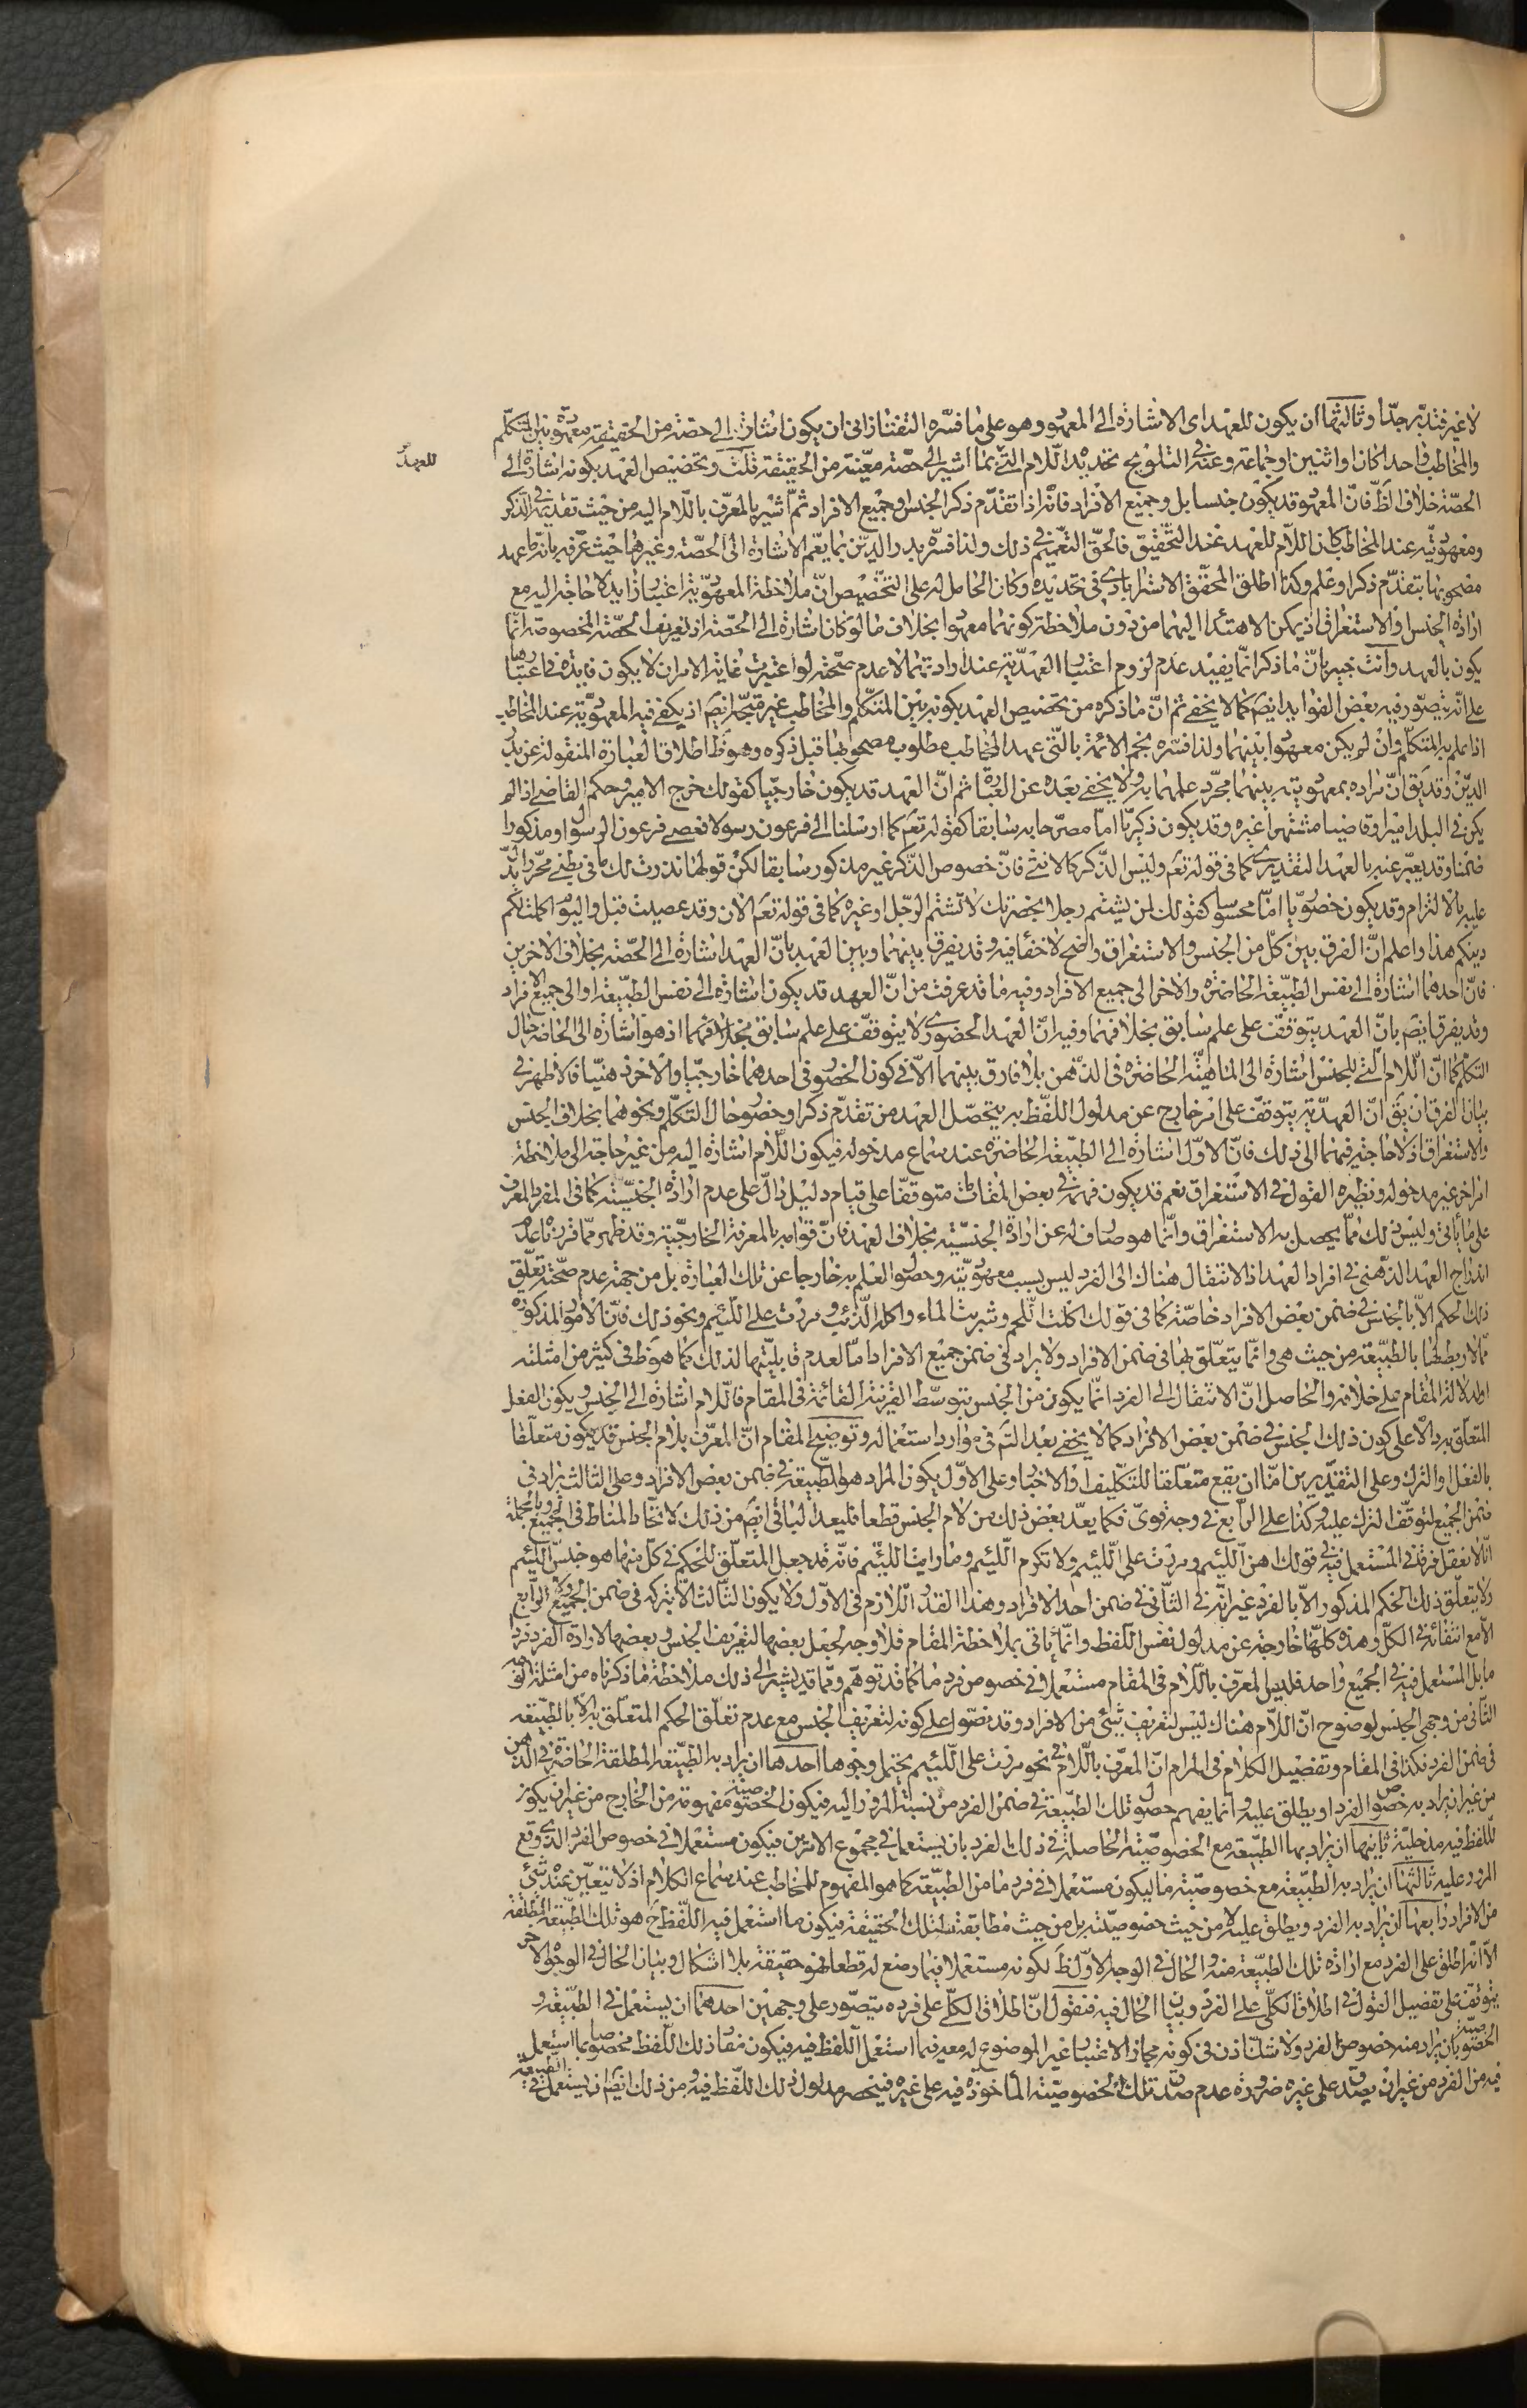 لا غير فتدبّر جدّا وثالثها ان يكون للعهد اى الاشارة الى المعهود وهو على ما فسّره التفتازانى ان يكون اشارة الى حصّة من الحقيقة معهودة بين المتكلّم
للعهد
والمخاطب واحدا كان او اثنين او جماعة وعنه فى التلويح تحديد اللّام الّتى بما اشير الى حصّة معيّنة من الحقيقة قلت وتخصيص العهد بكونه اشارة الى
الحصّة خلاف الظّ فانّ المعهود قد يكون جنسا بل وجميع الافراد فانّه اذا تقدّم ذكر الجنس وجميع الافراد ثمّ اشير بالمعرّف باللّام اليه من حيث تقدّمه فى الذّكر
ومعهوديّته عند المخاطب كان اللّام للعهد عند التّحقيق فالحقّ التّعميم فى ذلك ولذا فسّره بدر الدّين بما يعمّ الاشارة الى الحصّة وغيرها حيث عرّفه بانّه ما عهد
مصحوبها بتقدّم ذكر او علم وكذا اطلق المحقّق الاسترابادى فى تحديده وكان الحامل له على التخصيص انّ ملاحظة المعهوديّة اعتبار زايد لا حاجة اليه مع
ارادة الجنس والاستغراق اذ يمكن الاهتداء اليهما من دون ملاحظة كونهما معهودا بخلاف ما لو كان اشارة الى الحصّة اذ تعريف الحصّة المخصوصة انّما
يكون بالعهد وانت خبير بانّ ما ذكر انّما يفيد عدم لزوم اعتبار العهديّة عند ارادتهما لا عدم صحّته لو اعتبرت غاية الامر ان لا يكون فايدة فى اعتبارها
على انّه يتصوّر فيه بعض الفوايد ايضَ كما لا يخفى ثم انّ ما ذكره من تخصيص العهد بكونه بين المتكلّم والمخاطب غير متّجه ايضَ اذ يكفى فيه المعهوديّة عند المخاطب
اذا علم به المتكلّم وان لم يكن معهودا بينهما ولذا فسّره نجم الائمّة بالّتى عهد المخاطب مطلوب مصحوبها قبل ذكره وهو ظَ اطلاق العبارة المنقولة عن بدر
الدّين وقد يَق انّ مراده بمعهوديّته بينهما مجرّد علمهما به ولا يخفى بعده عن العبارة ثم انّ العهد قد يكون خارجيّا كقولك خرج الامير وحكم القاضى اذا لم
يكن فى البلد امير او قاضيا مشتهرا غيره وقد يكون ذكريّا امّا مصرّحا به سابقا كقوله تعَم كما ارسلنا الى فرعون رسولا فعصى فرعون الرسول او مذكورا
ضمنا وقد يعبّر عنه بالعهد التقديرى كما فى قوله تعَم وليس الذّكر كالانثى فانّ خصوص الذّكر غير مذكور سابقا لكنّ قولها نذرت لك ما فى بطنى محرّرا يدلّ
عليه بالالتزام وقد يكون حضوريّا امّا محسوسا كقولك لمن يشتم رجلا بحضرتك لا تشتم الرّجل او غيره كما فى قوله تعَم الآن وقد عصيت قبل واليوم اكملت لكم
دينكم هذا واعلم انّ الفرق بين كلّ من الجنس والاستغراق واضح لا خفاء فيه وقد يفرق بينهما وبين العهد بانّ العهد اشارة الى الحصّة بخلاف الاخرين
فانّ احدهما اشارة الى نفس الطبيعة الحاضرة والاخر الى جميع الافراد وفيه ما قد عرفت من انّ العهد قد يكون اشارة الى نفس الطبيعة او الى جميع الافراد
وقد يفرق ايضَ بانّ العهد يتوقّف على علم سابق بخلافهما وفيه انّ العهد الحضورى لا يتوقّف على علم سابق بخلافهما اذ هو اشارة الى الحاضر حال
التكلّم كما انّ اللّام الّتى للجنس اشارة الى الماهيّة الحاضرة فى الذّهن بلا فارق بينهما الّا فى كون الحضور فى احدهما خارجيّا والاخر ذهنيّا فالاظهر فى
بيان الفرق ان يَق انّ العهديّة يتوقّف على امر خارج عن مدلول اللفظ به يتحصّل العهد من تقدّم ذكر او حضور حال التكلّم ونحوهما بخلاف الجنس
والاستغراق اذ لا حاجة فيهما الى ذلك فانّ الاوّل اشارة الى الطبيعة الحاضرة عند سماع مدخوله فيكون اللّام اشارة اليه من غير حاجة الى ملاحظة
امر اخر غير مدخوله ونظيره القول فى الاستغراق نعم قد يكون فهمه فى بعض المقامات متوقّفا على قيام دليل دالّ على عدم ارادة الجنسيّة كما فى المفرد المعرّف
على ما ياتى وليس ذلك ممّا يحصل به الاستغراق وانّما هو صارف له عن ارادة الجنسيّة بخلاف العهد فانّ قوامه بالمعرفة الخارجيّة وقد ظهر ممّا قررناه عدم
اندراج العهد الذهنى فى افراد العهد اذ الانتقال هناك الى الفرد ليس بسبب معهوديّته وحصول العلم به خارجا عن تلك العبارة بل من جهة عدم صحّة تعلّق
ذلك الحكم الّا بالجنس فى ضمن بعض الافراد خاصّة كما فى قولك اكلت اللّحم وشربت الماء واكله الذّئب ومررت على اللّئيم ونحو ذلك فانّ الامور المذكورة
ممّا لا ربط لها بالطبيعة من حيث هى وانّما يتعلّق بها فى ضمن الافراد ولا يراد فى ضمن جميع الافراد امّا لعدم قابليّتها لذلك كما هو ظَ فى كثير من امثلته
او لدلالة المقام على خلافه والحاصل انّ الانتقال الى الفرد انّما يكون من الجنس بتوسّط القرينة القائمة فى المقام فاللّام اشارة الى الجنس ويكون الفعل
المتعلّق به دالّا على كون ذلك الجنس فى ضمن بعض الافراد كما لا يخفى بعد التّم فى موارد استعماله وتوضيح المقام انّ المعرّف بلام الجنس قد يكون متعلّقا
بالفعل او الترك وعلى التقديرين امّا ان يقع متعلّقا للتكليف او الاخبار وعلى الاوّل يكون المراد هو الطّبيعة فى ضمن بعض الافراد وعلى الثالث يراد فى
ضمن الجميع لتوقّف الترك عليه وكذا على الرّابع فى وجه قوىّ فكما يعدّ بعض ذلك من لام الجنس قطعا فليعدّ الباقى ايضَ من ذلك لاتّحاد المناط فى الجميع وبالجملة
انّا لا نعقل فرقا فى المستعمل فيه فى قولك اهن اللّئيم ومررت على اللّئيم ولا تكرم اللّئيم وما رايت اللّئيم فانّه قد جعل المتعلّق للحكم فى كلّ منها هو جنس اللّئيم
ولا يتعلّق ذلك الحكم المذكور الّا بالفرد غير انّه فى الثّانى فى ضمن احد الافراد وهذا القدر اللّازم فى الاوّل ولا يكون الثّالث الّا بتركه فى ضمن الجميع ولا الرّابع
الّا مع انتفائه فى الكلّ وهذه كلّها خارجة عن مدلول نفس اللّفظ وانّما ياتى بملاحظة المقام فلا وجه لجعل بعضها لتعريف الجنس وبعضها لارادة الفرد فردا
ما بل المستعمل فيه فى الجميع واحد فليس المعرّف باللّام فى المقام مستعملا فى خصوص فرد ما كما قد توهّم وممّا قد يشير الى ذلك ملاحظة ما ذكرناه من امثلة القسم
الثّانى من وجهى الجنس لوضوح انّ اللّام هناك ليس لتعريف شئ من الافراد وقد نصّوا على كونه لتعريف الجنس مع عدم تعلّق الحكم المتعلّق به الّا بالطّبيعة
فى ضمن الفرد فكذا فى المقام وتفصيل الكلام فى المرام انّ المعرّف باللّام فى نحو مررت على اللّئيم يحتمل وجوها احدها ان يراد به الطّبيعة المطلقة الحاضرة فى الذّهن
من غير ان يراد به خصوص الفرد او يطلق عليه وانّما يفهم حصول تلك الطّبيعة فى ضمن الفرد من نسبة المرور اليه فيكون الخصوصيّة مفهومة من الخارج من غير ان يكون
للّفظ فيه مدخليّة ثانيها ان يراد بها الطّبيعة مع الخصوصيّة الحاصلة فى ذلك الفرد بان يستعمل فى مجموع الامرين فيكون مستعملا فى خصوص الفرد الّذى وقع
المرور عليه ثالثها ان يراد به الطّبيعة مع خصوصيّة ما ليكون مستعملا فى فرد ما من الطّبيعة كما هو المفهوم للمخاطب عند سماع الكلام اذ لا تعيّن عنده شئ
من الافراد رابعها ان يراد به الفرد ويطلق عليه لا من حيث خصوصيّته بل من حيث مطابقته لتلك الحقيقة فيكون ما استعمل فيه اللّفظ حَ هو تلك الطّبيعة المطلقة
الّا انّه اطلق على الفرد مع ارادة تلك الطّبيعة منه والحال فى الوجه الاوّل ظَ لكونه مستعملا فيما وضع له قطعا فهو حقيقة بلا اشكال وبيان الحال فى الوجوه الاخر
يتوقّف على تفصيل القول فى اطلاق الكلّى على الفرد وبيان الحال فيه فنقول انّ اطلاق الكلّى على فرده يتصوّر على وجهين احدهما ان يستعمل فى الطّبيعة و
الخصوصيّة بان يراد منه خصوص الفرد ولا شكّ اذن فى كونه مجازا لاعتبار غير الموضوع له معه فيما استعمل اللّفظ فيه فيكون مفاد ذلك اللّفظ مخصوصا بما استعمل
فيه من الفرد من غير ان يصدق على غيره ضرورة عدم صدق تلك الخصوصيّة الماخوذة فيه على غيره فينحصر مدلول ذلك اللّفظ فيه ومن ذلك ايضَ ان يستعمل فى الطبيعة